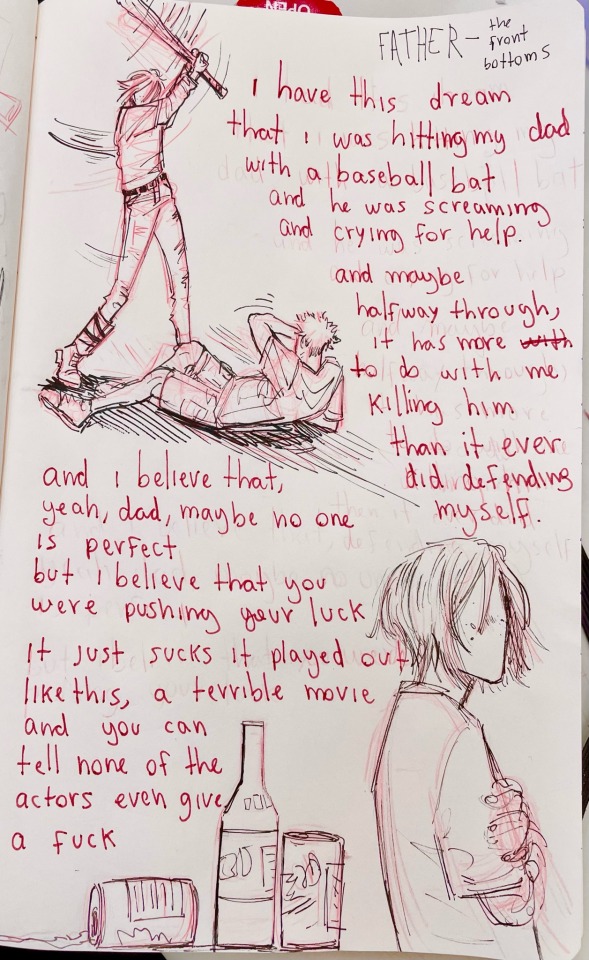 OPEN
FATHER - the front bottoms
I have this dream
that I was hitting my dad
with a baseball bat
and he was screaming
and crying for help.
and maybe
halfway through,
it has more with
to do with me
killing him
than it ever
did defending
myself.
and I believe that,
yeah, dad, maybe no one
is perfect
but I believe that you
were pushing your luck
It just sucks it played out
like this, a terrible movie
and you can
tell none of the
actors even give
a fuck